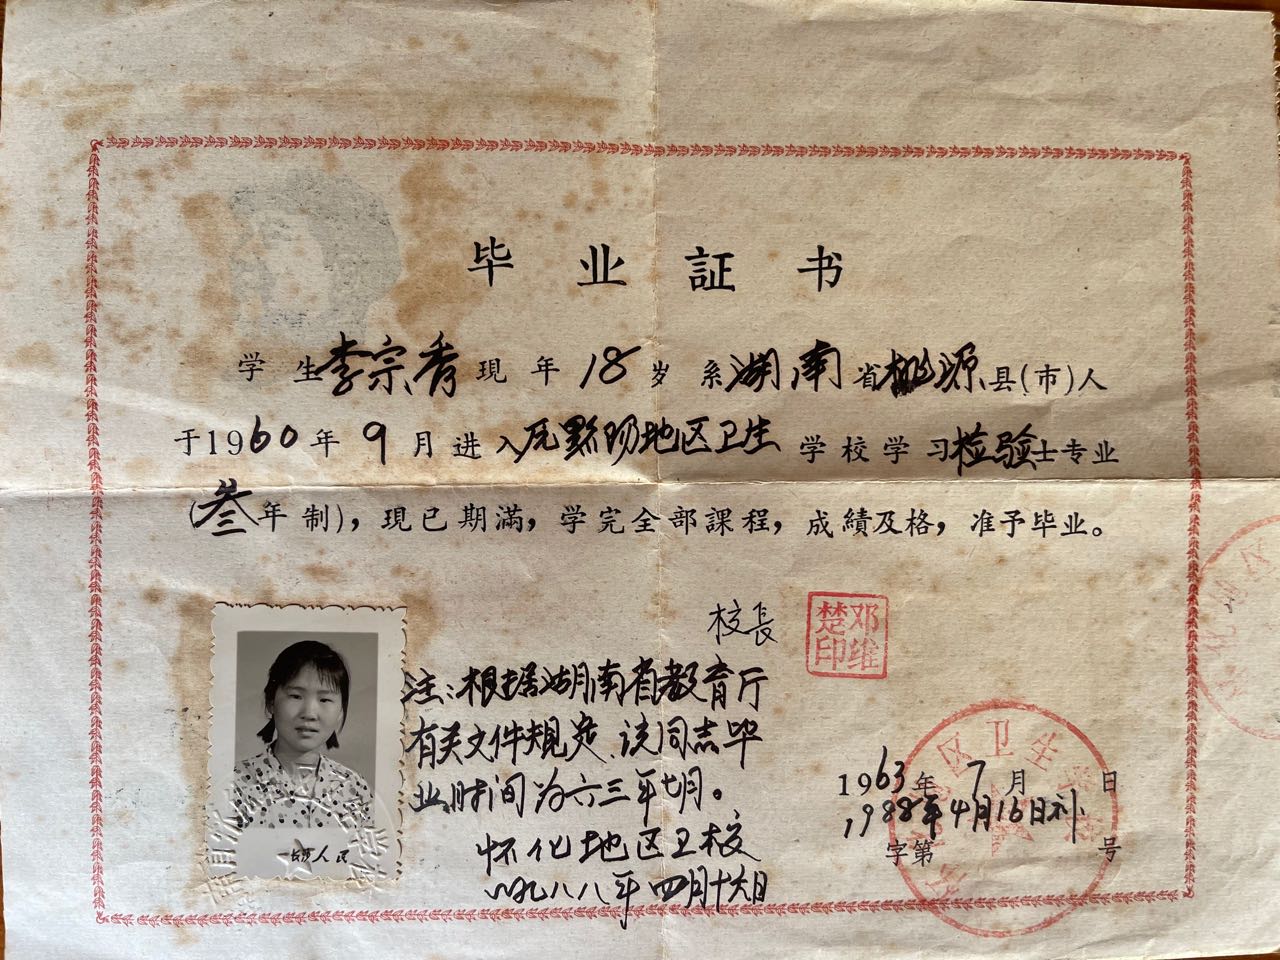 毕业証书
学生李宗秀現年18岁系湖南省桃源县(市)人
于1960年9月进入元黔阳地区卫生学校学习检验士专业
(叁年制)，現已期滿，学完全部課程，成績及格，准予毕业。
校長
邓维楚印
注：根据湖南省教育厅
有关文件规定、该同志毕
业时间为六三年七月。
怀化地区卫校
一九八八年四月十六日
1963年7月 日
1988年4月16日补
字第 号
人民
区卫生学校